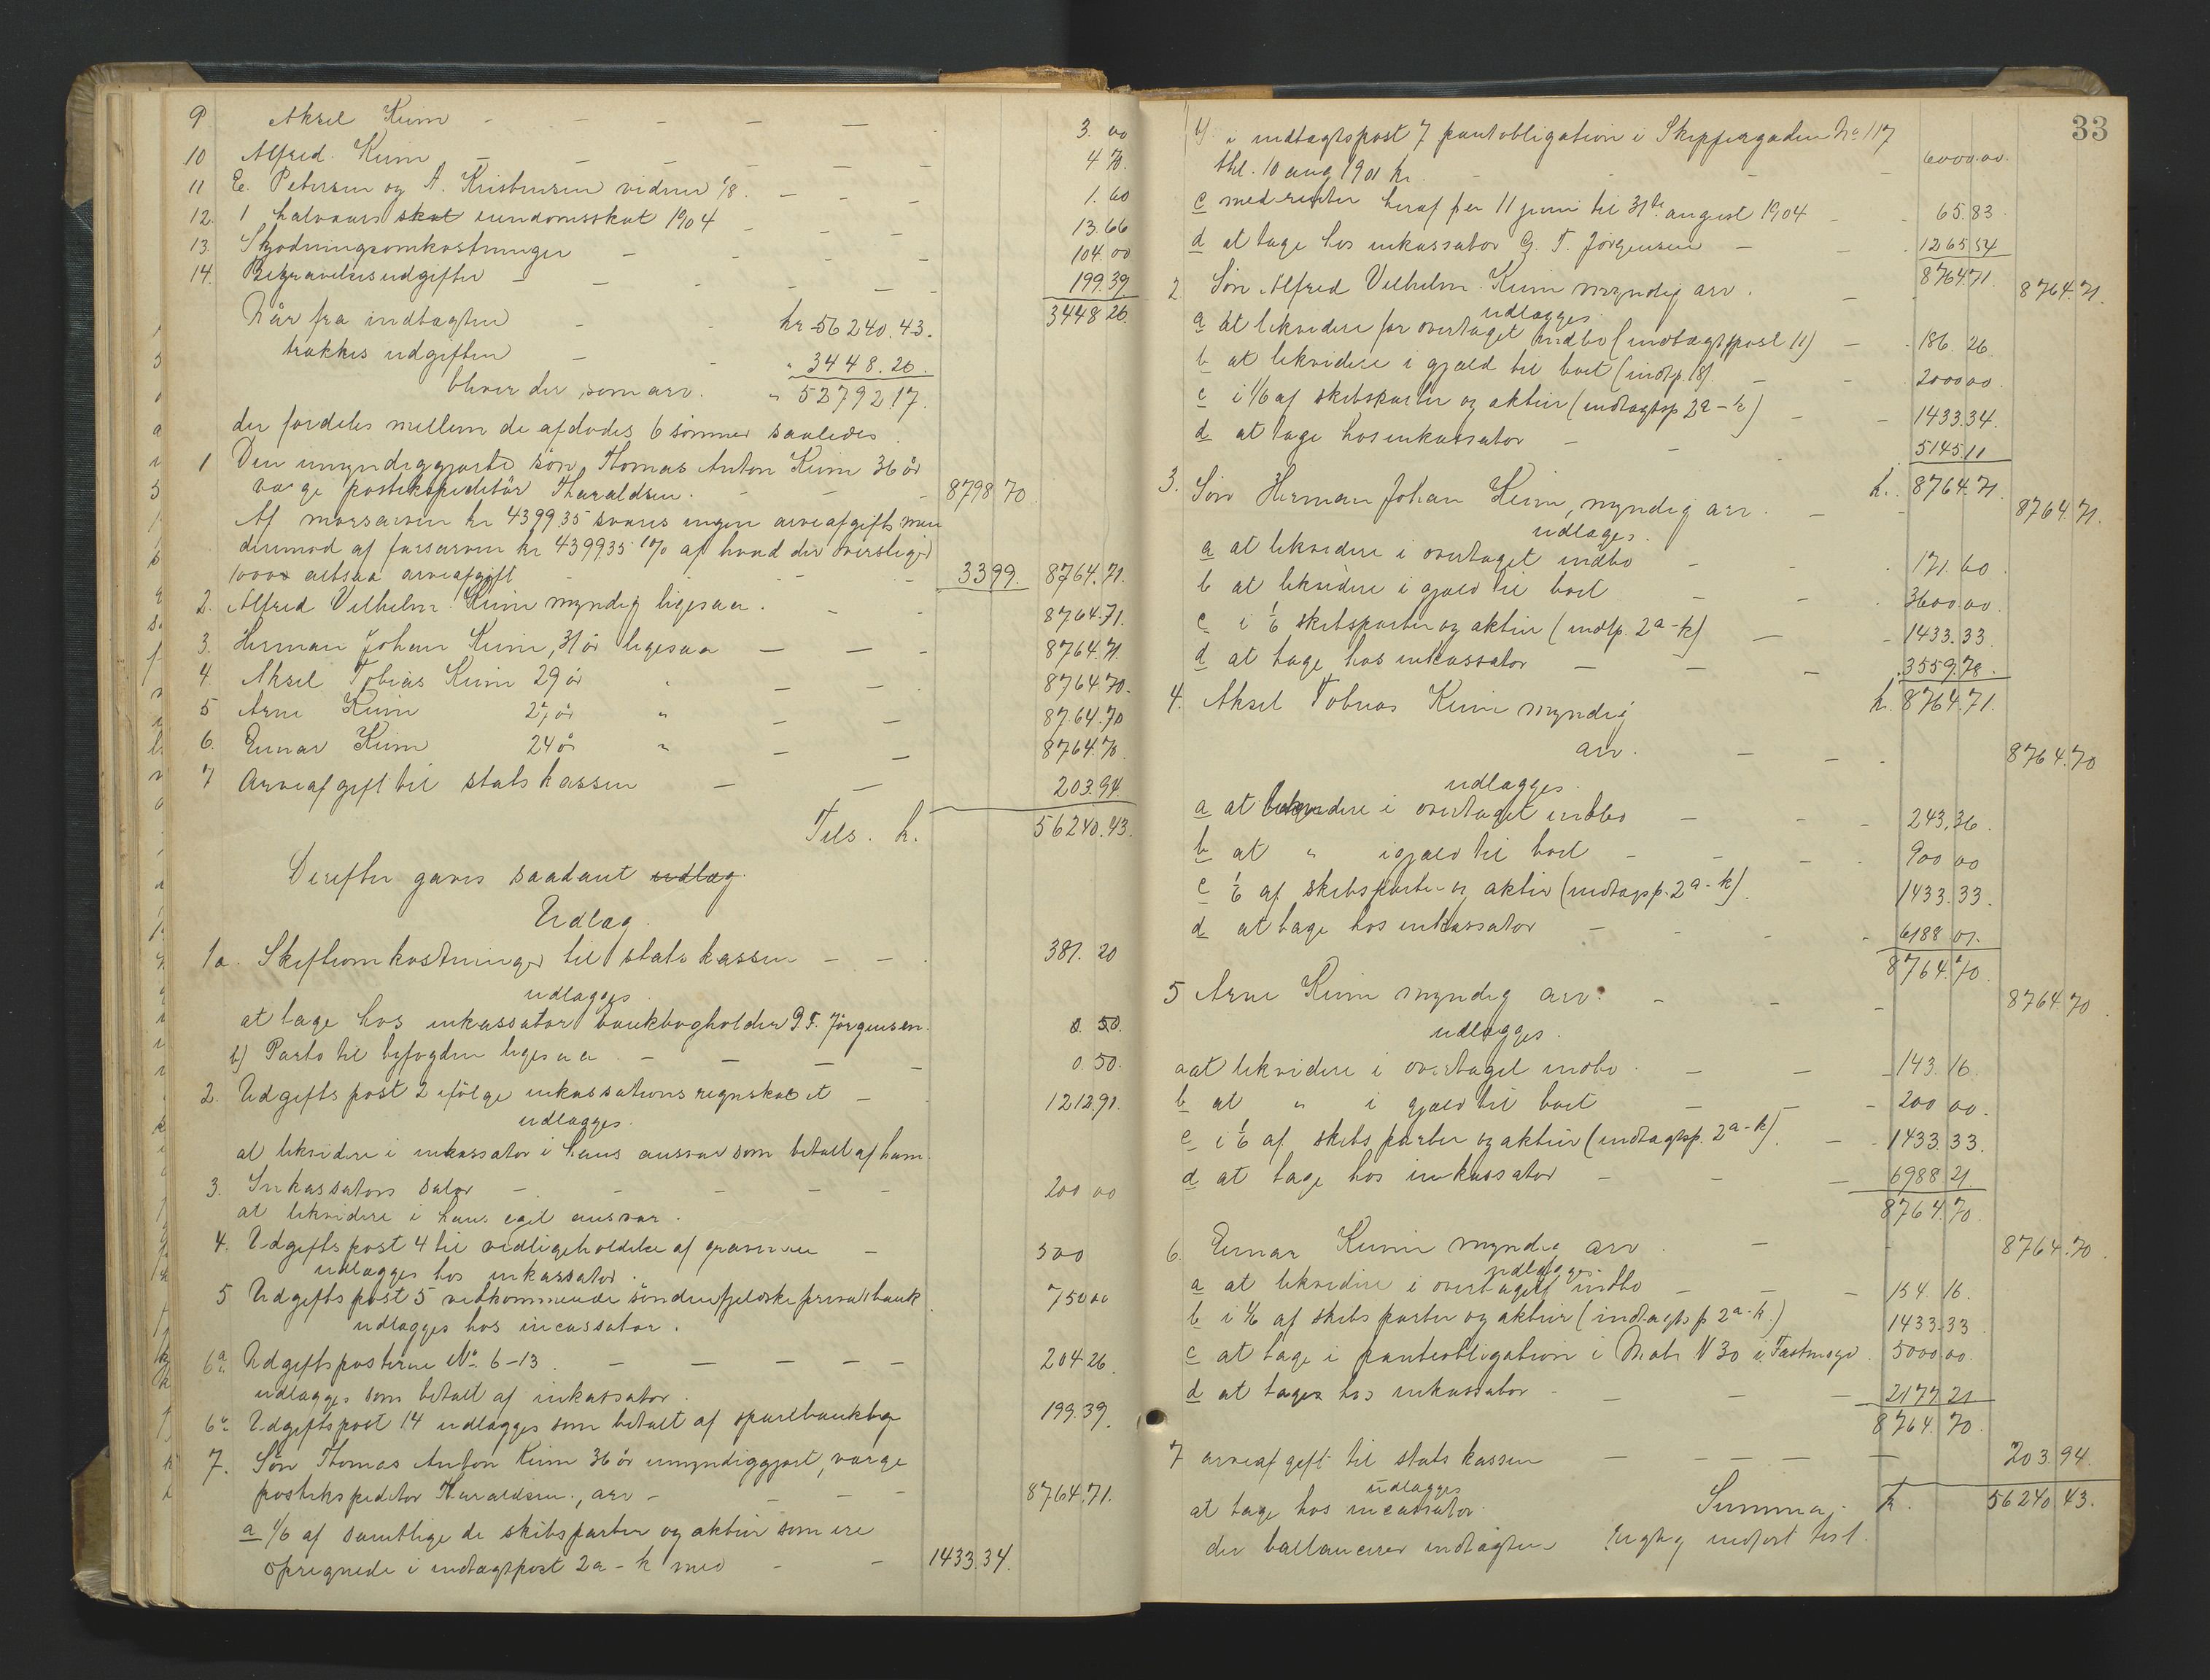 9 Aksel Keim - - - — — 3.00
10 Alfred Keim — — — — — 4.70.
11 E. Petersen og A. Kristensen vidner 1/8. - - - 1.60
12. 1 halvaars skat eiendomsskat 1904 - - - 13.66
13 Skjødningsomkostninger — - - - 104.00
14. Begravelsesudgifter - - - — — 199.39
3448 26.
Når fra indtægten - - kr 56240.43.
trækkes udgiften — - " 3448.26.
bliver der som arv. " 52792.17.
der fordeles mellem de afdødes 6 sønner saaledes.
1 Den umyndiggjorte søn, Thomas Anton Keim 36 år
værge postekspeditør Tharaldsen. - — - 8798 70
Af morsarven kr 4399 35 svares ingen arveafgift, men
derimod af farsarven kr 4399 35 1% af hvad der overstiger
1000 altsaa arveafgift - - - 33 99. 8764.71.
2. Alfred Vilhelm Keim myndig ligesaa. - - 8764.71.
3. Herman Johan Keim, 31 år ligesaa — — - 8764.71.
4. Aksel Tobias Keim 29 år " — — 8764.70.
5 Arne Keim 27 år " — — 8764.70
6. Einar Keim 24 år " — — 8764.70.
7 Arveafgift til statskassen — — 203.94.
Tils. k. 56240.43.
Derefter gaves saadant udlæg.
Udlæg.
1a. Skifteomkostninger til statskassen — — 381. 20
udlægges
at tage hos inkassator bankbogholder G. T. Jørgensen.
b) Porto til byfogden ligesaa - — — — 0.50.
2. Udgiftspost 2 ifølge inkassations regnskabet — 1212.91.
udlægges.
at likvidere i inkassator i hans ansvar som betalt af ham.
3. Inkassators salær - - - — — 200 00
at likvidere i hans eget ansvar.
4. Udgiftspost 4 til vedligeholdelse af gravene — 300
udlægges hos inkassator.
5 Udgiftspost 5 vedkommende søndenfjeldske privatbank 750 00
udlægges hos incassator.
6a Udgiftsposterne No. 6-13. — — — — — 204 26.
udlægges som betalt af inkassator.
6b Udgiftspost 14 udlægges som betalt af sparebankbog 199.39.
7. Søn Thomas Anton Keim 36 år umyndiggjort, værge
postekspeditør Tharaldsen., arv - - — - 8764.71.
a 1/6 af samtlige de skibsparter og aktier som ere
opregnede i indtægtspost 2a - k med - - 1433.34.
33
b. i indtægtspost 7 pantobligation i Skippergaden No 117
thl. 10 aug 1901 kr. - - - — 6000.00.
c med renter heraf fra 11 juni til 31te august 1904 - - 65.83.
d at tage hos inkassator G. T. Jørgensen — - 1265.54
8764.71.
2 Søn Alfred Vilhelm Keim myndig arv. — - 8764.71.
udlægges.
a at likvidere for overtaget indbo (indtægtspost 11) — - 186. 26.
b at likvidere i gjæld til boet (indtp. 18). — - 2000 00.
c i 1/6 af skibsparter og aktier (indtægtsp 2a - k) - - 1433.34.
d at tage hos inkassator - - - 5145.11
3. Søn Herman Johan Keim, myndig arv. — k. 8764.71. 8764.71.
udlæges.
a at likvidere i overtaget indbo - - 171.60.
b at likvidere i gjæld til boet - - 3600.00.
c i 1/6 skibsparter og aktier (indtp. 2a - k) — - 1433.33
d at tage hos inkassator — — - 3559.78.
4. Aksel Tobias Keim myndig k. 8764.71.
arv. — - - 8764.70
udlægges.
a at likvidere i overtaget indbo — - - 243.36.
b at " i gjæld til boet - - - 900 00
c 1/6 af skibsparter og aktier (indtægsp. 2a - k). 1433.33.
d at tage hos inkassator — - - 6188 01.
8764.70.
5 Arne Keim myndig arv. - - - 8764.70
udlægges.
a at likvidere i overtaget indbo. — — 143.16.
b at " i gjæld til boet — — - 200 00.
c i 1/6 af skibsparter og aktier (indtægtsp. 2a - k). — 1433.33.
d at tage hos inkassator - - — 6988 21.
8764.70.
6. Einar Keim myndig arv. — 8764.70.
udlægges.
a at likvidere i overtaget indbo — — - 154. 16.
b i 1/6 af skibsparter og aktier (indtægtsp 2a - k.) 1433.33
c at tage i panteobligation i Matr N 30 i 5000.00.
d at tages hos inkassator - — - — 2177.21
8764.70.
7 arveafgift til statskassen — — — — — 203.94.
udlægges
at tage hos incassator. Summa k. 56240.43.
der ballancerer indtægten. Rigtig indført test.